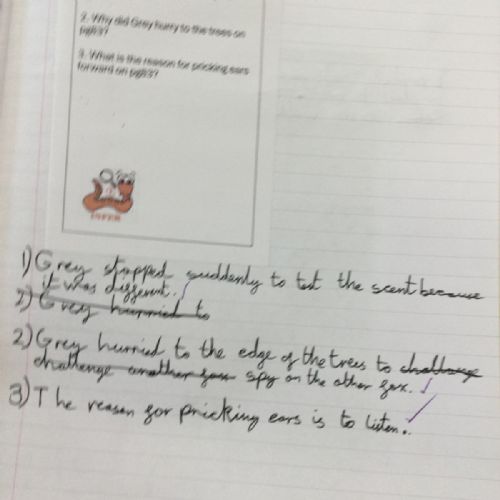 2. Why did Grey hurry to the trees on
pg83?
3. What is the reason for pricking ears
forward on pg83?
INFER
1) Grey stopped suddenly to test the scent because
it was different.
2) Grey hurried to
2) Grey hurried to the edge of the trees to challenge
challenge another fox spy on the other fox.
3) The reason for pricking ears is to listen.